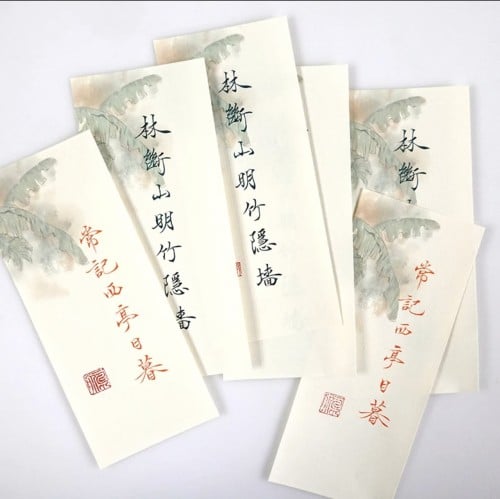 常記西亭日暮
林斷山明竹隱墙
林斷山明竹隱墙
林斷
常記西亭日暮